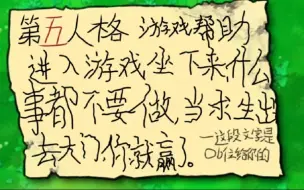 第五人格 游戏帮助
进入游戏坐下来什么
事都不要做当求生出
去大门,你就赢了。
一这段文案是